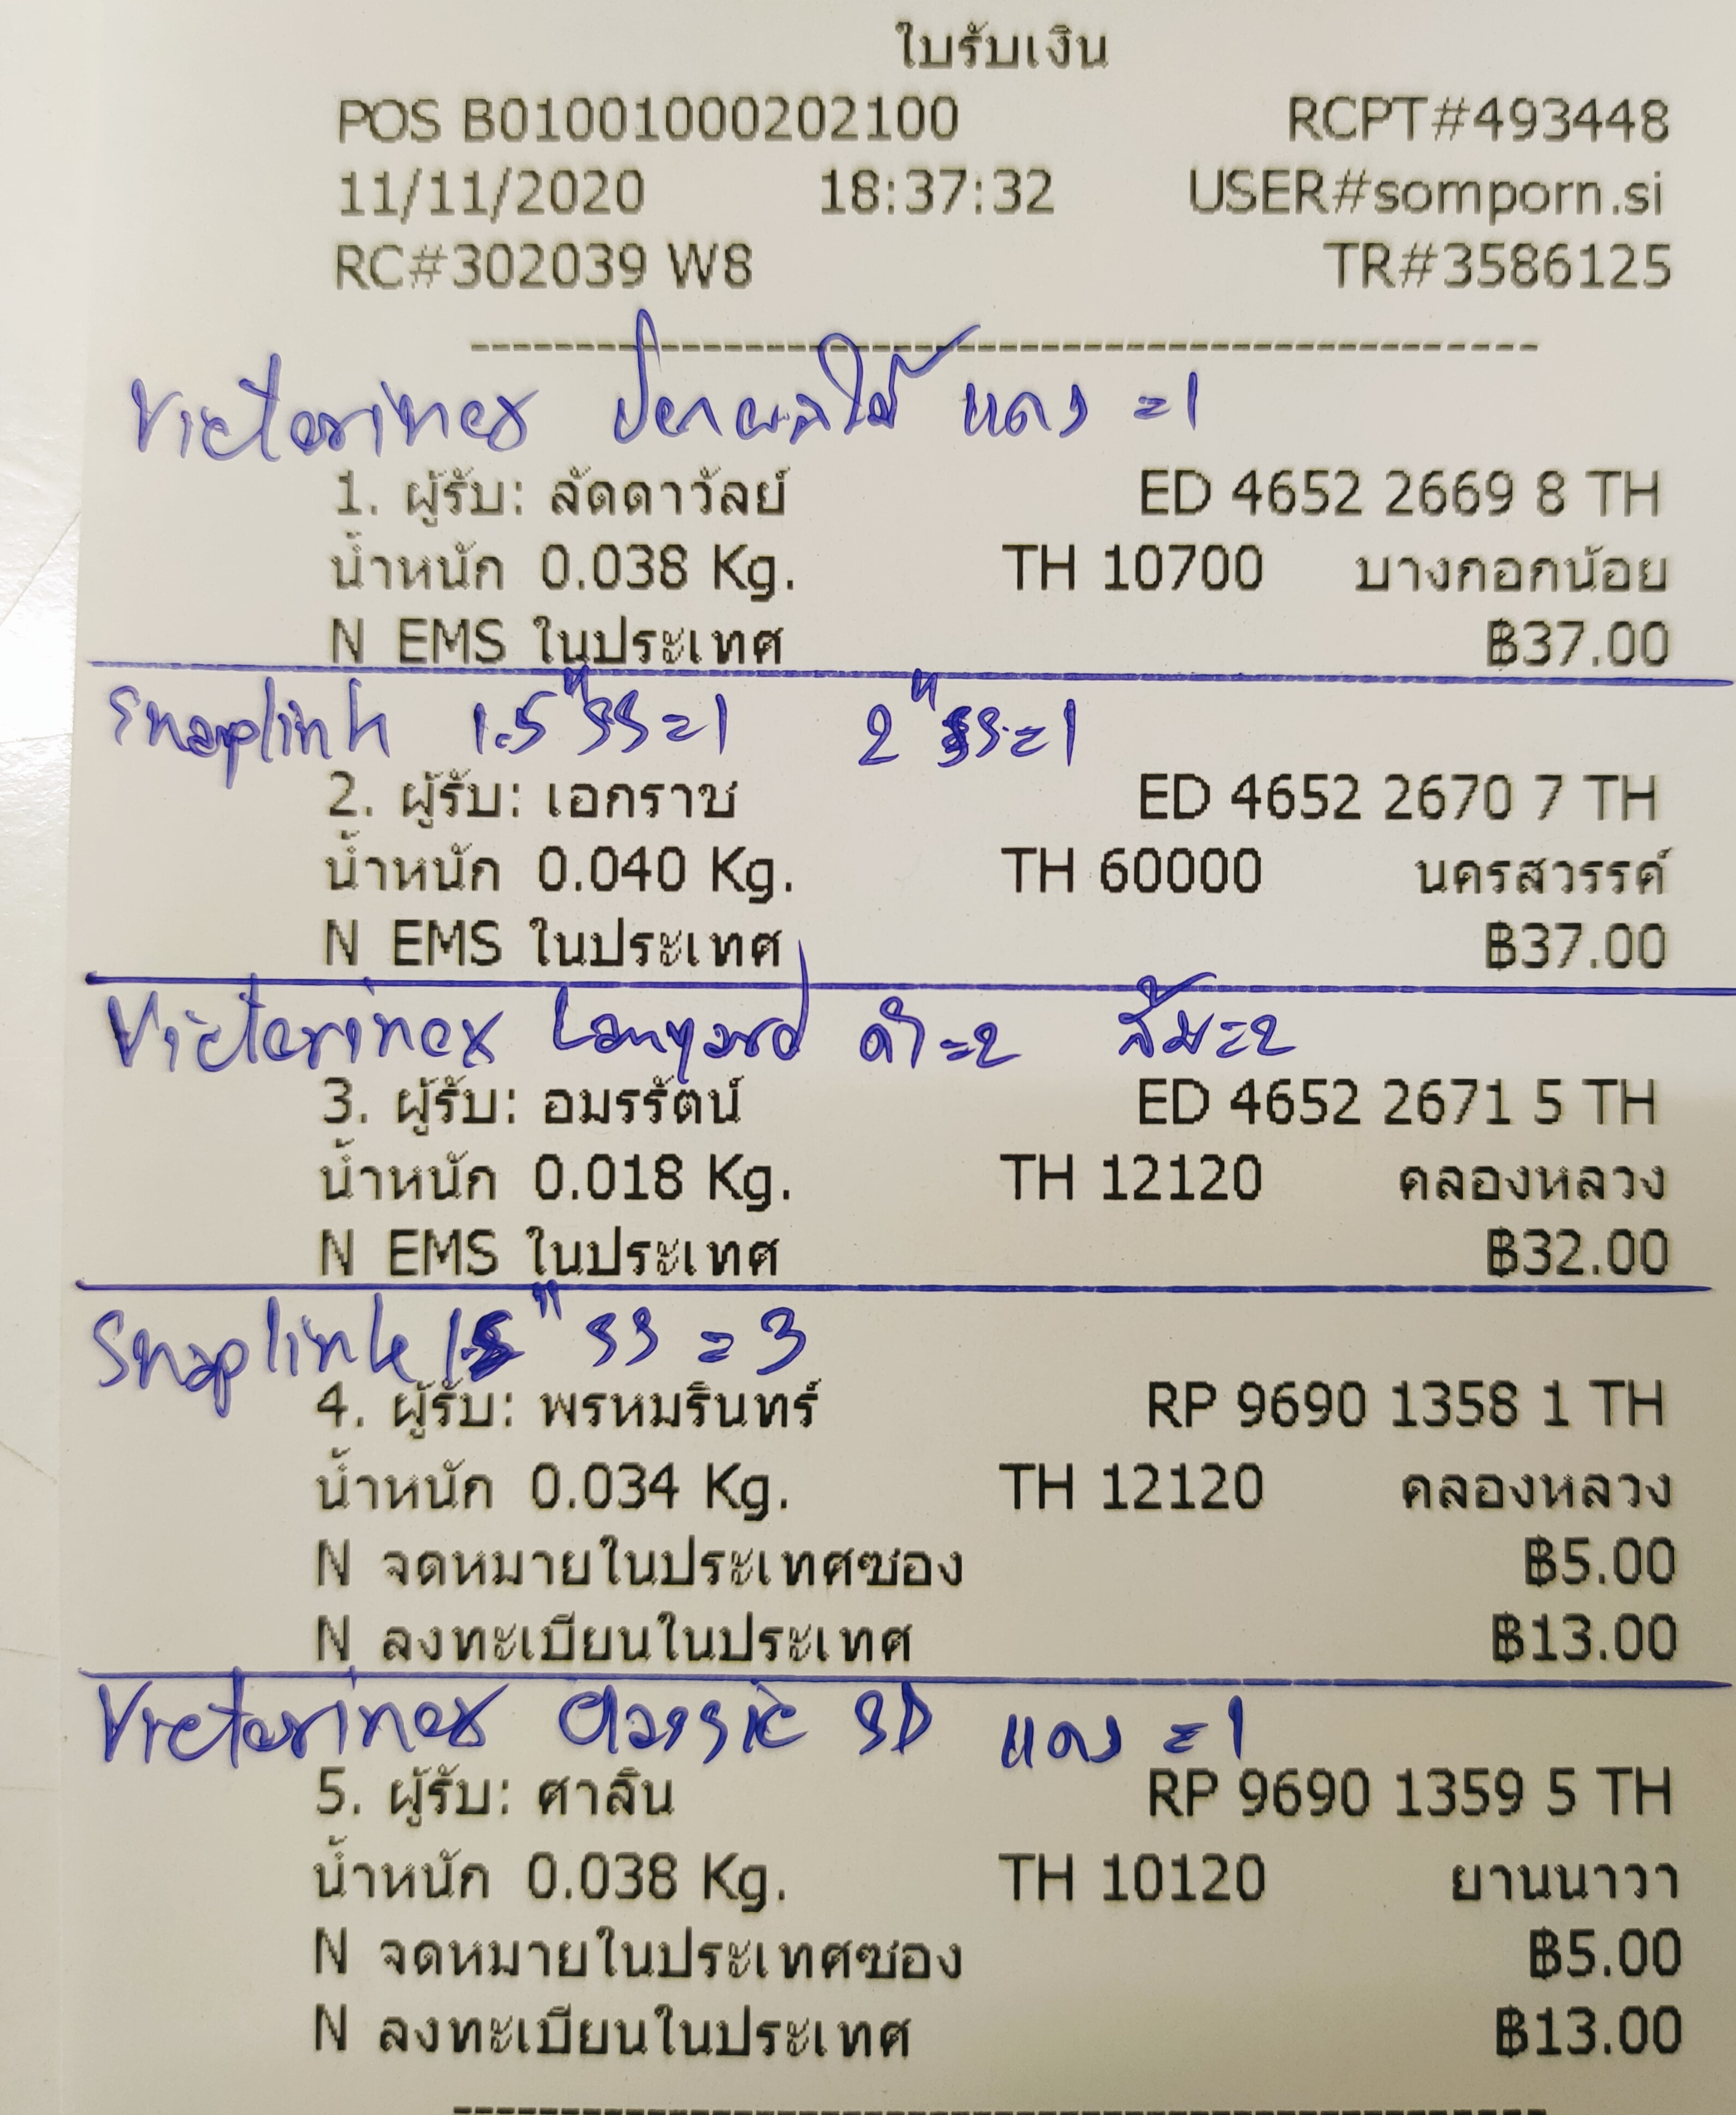 ใบรับเงิน
POS B01001000202100 RCPT#493448
11/11/2020 18:37:32 USER#somporn.si
RC#302039 W8 TR#3586125
Victorinox ปอกผลไม้ แดง =1
1. ผู้รับ: ลัดดาวัลย์ ED 4652 2669 8 TH
น้ำหนัก 0.038 Kg. TH 10700 บางกอกน้อย
N EMS ในประเทศ ฿37.00
Snaplink 1.5" SS=1 2" SS=1
2. ผู้รับ: เอกราช ED 4652 2670 7 TH
น้ำหนัก 0.040 Kg. TH 60000 นครสวรรค์
N EMS ในประเทศ ฿37.00
Victorinox Lanyard ดำ=2 ส้ม=2
3. ผู้รับ: อมรรัตน์ ED 4652 2671 5 TH
น้ำหนัก 0.018 Kg. TH 12120 คลองหลวง
N EMS ในประเทศ ฿32.00
Snaplink 1.5" SS =3
4. ผู้รับ: พรหมรินทร์ RP 9690 1358 1 TH
น้ำหนัก 0.034 Kg. TH 12120 คลองหลวง
N จดหมายในประเทศซอง ฿5.00
N ลงทะเบียนในประเทศ ฿13.00
Victorinox Classic SD แดง =1
5. ผู้รับ: ศาลิน RP 9690 1359 5 TH
น้ำหนัก 0.038 Kg. TH 10120 ยานนาวา
N จดหมายในประเทศซอง ฿5.00
N ลงทะเบียนในประเทศ ฿13.00